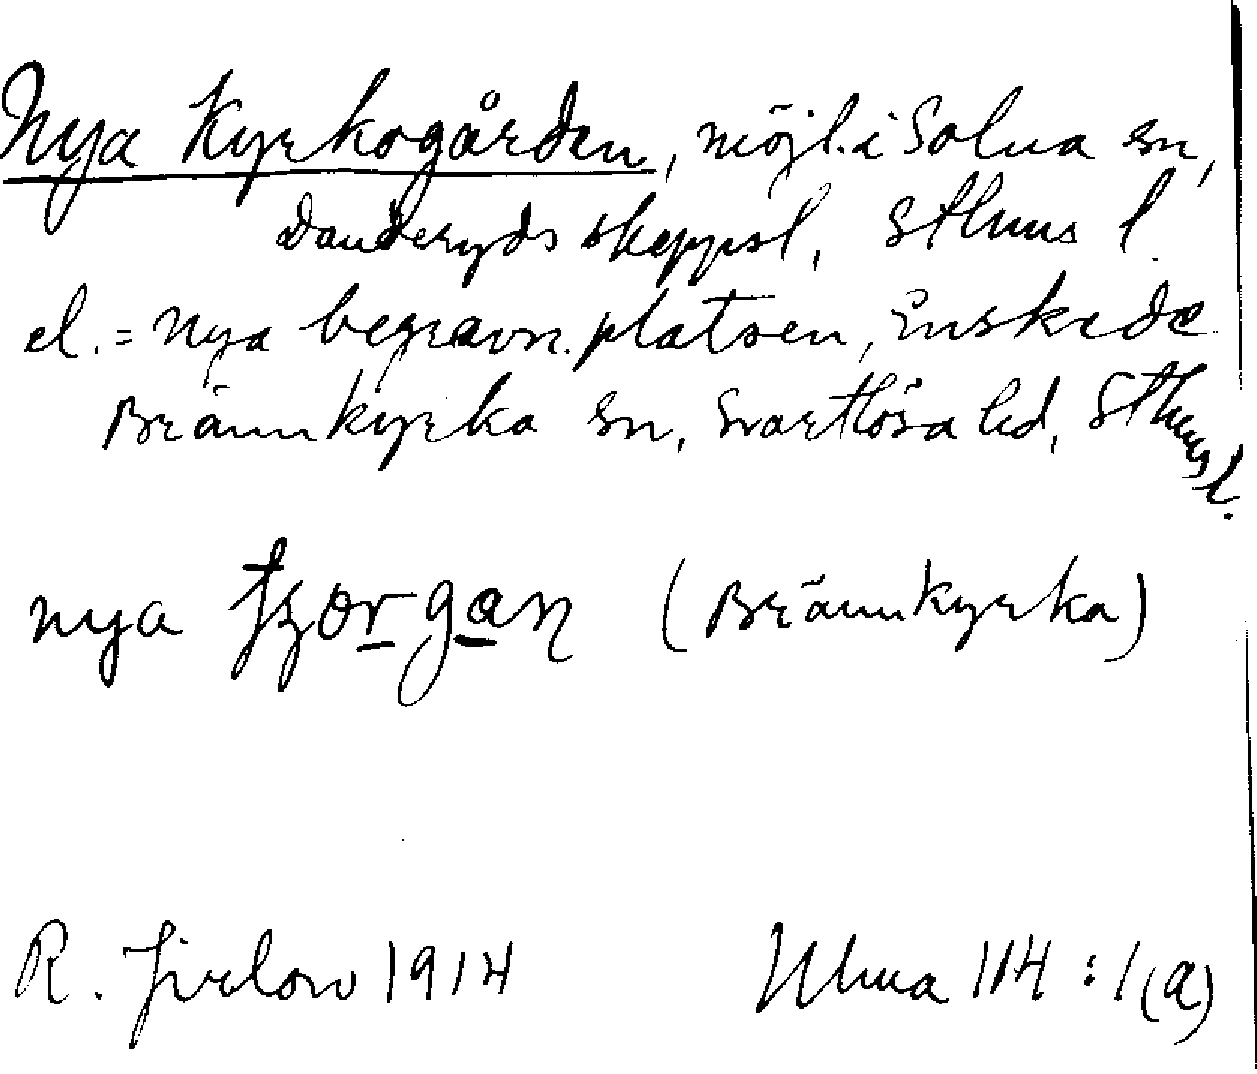 Nya Kyrkogården, möjl. i Solna sn,
Danderyds skeppsl, Sthms l.
el. = nya begravn. platsen, Enskede
Brännkyrka sn, Svartlösa hd, Sthms l.
nya (Brännkyrka)
R. Jirlow 1914 Ulma 114 : 1 (a)